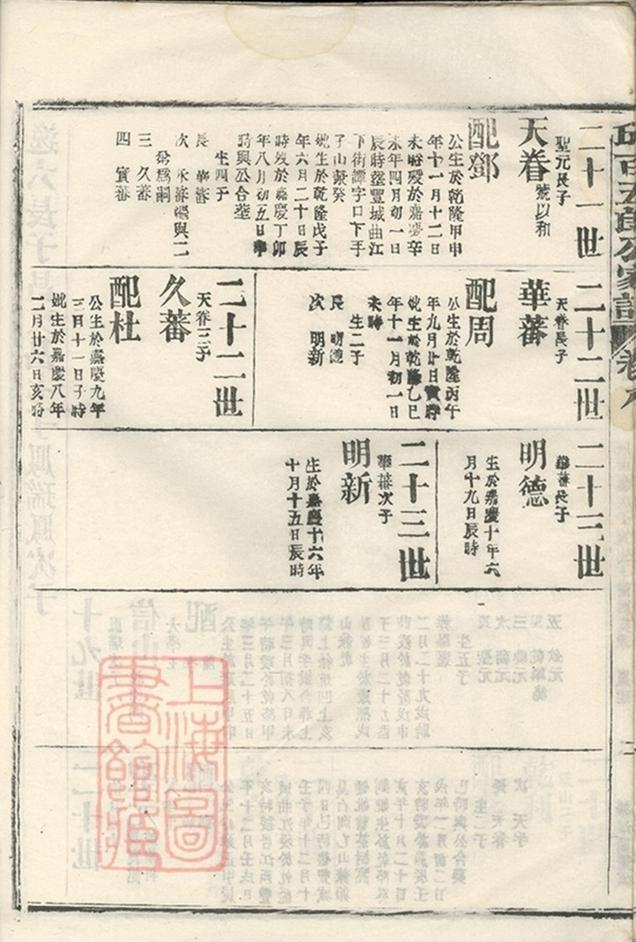 二十一世
聖元長子
天眷
號以和
配鄧
公生於乾隆甲申
年十一月十二日
未時歿於嘉慶辛
未年四月初一日
辰時塟豐城曲江
下街譚字口下手
子山㪽癸
妣生於乾隆戊子
年六月二十日辰
時歿於嘉慶丁卯
年八月初五日
時與公合塟
生四子
長 華蕃
四 實蕃
三 久蕃
二十二世
天眷長子
華蕃
配周
公生於乾隆丙午
年九月廿日寅時
妣生於乾隆乙巳
年十一月初一日
未時
生二子
長 明德
次 明新
二十二世
天眷三子
久蕃
配杜
公生於嘉慶九年
三月十一日子時
妣生於嘉慶八年
二月廿六日亥時
二十三世
華蕃長子
明德
生於嘉慶十年六
月十九日辰時
二十三世
華蕃次子
明新
生於嘉慶十六年
十月十五日辰時
上海圖
書館藏